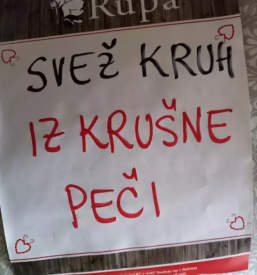 Rupa
SVEŽ KRUH
IZ KRUŠNE
PEČI